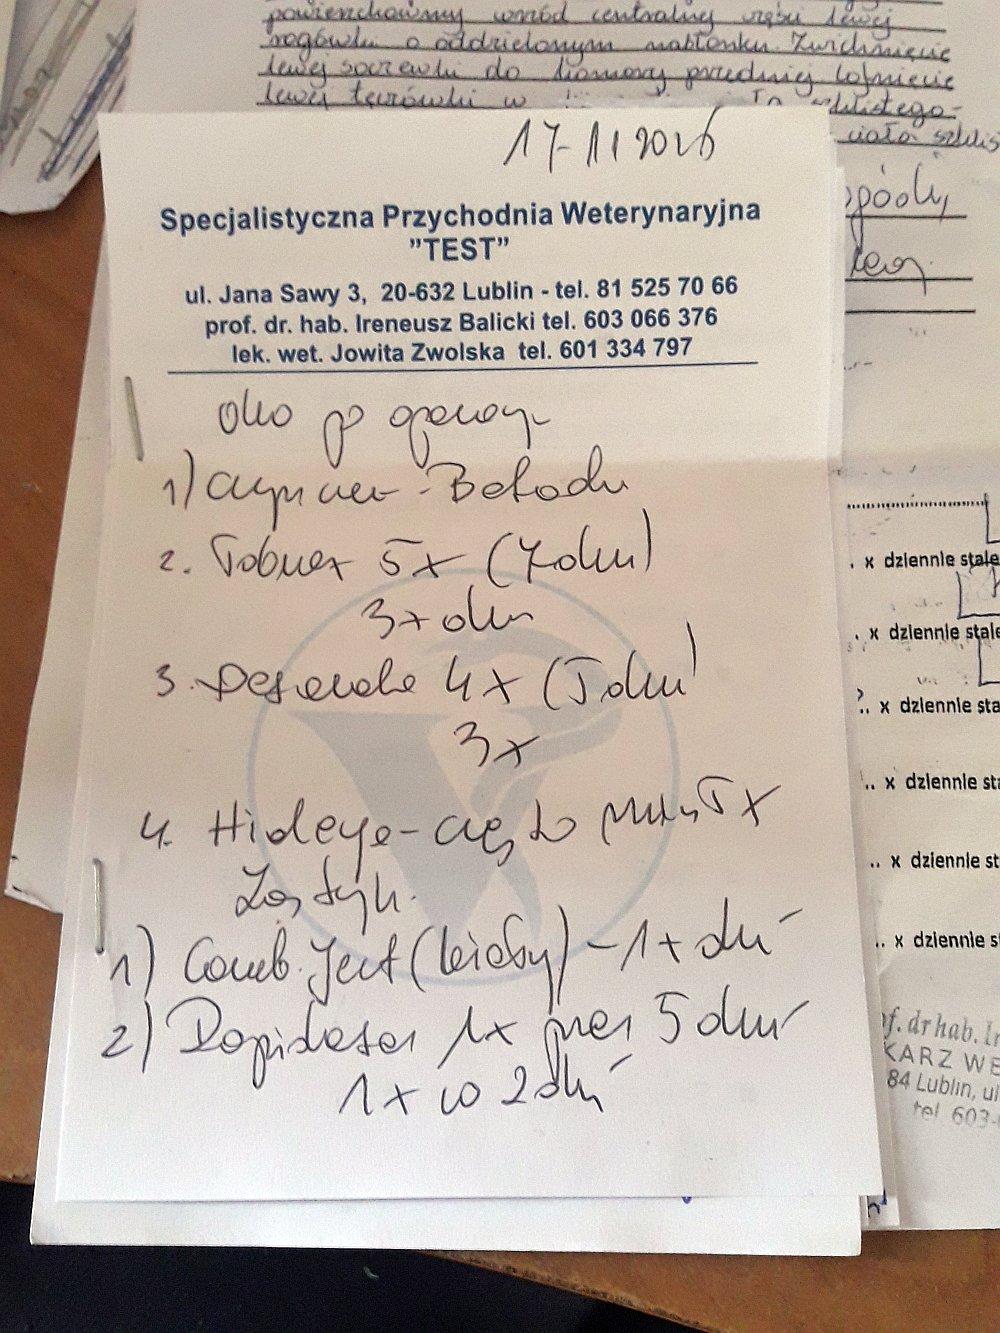 powierzchowny wrzód centralnej części lewej
rogówki o oddzielonym nabłonku. Zwichnięcie
lewej soczewki do komory przedniej
lewej tęczówki w
17-11 2016
Specjalistyczna Przychodnia Weterynaryjna
"TEST"
ul. Jana Sawy 3, 20-632 Lublin - tel. 81 525 70 66
prof. dr. hab. Ireneusz Balicki tel. 603 066 376
lek. wet. Jowita Zwolska tel. 601 334 797
Oko po operacji
1)
2. Tobrex 5x (7 dni)
3x dzien
3. 4x (5 dni)
3x
4. Hideye - często 5x
Zastrzyk.
1) Comb. Ject (biały) - 1x dzień
2) Rapidexon 1x przez 5 dni
1x co 2 dni
. x dziennie stale
. x dziennie stale
.. x dziennie sta
.. x dziennie sta
.. x dziennie st
.. x dziennie s
f. dr hab. Ir
KARZ WE
84 Lublin, ul
tel 603-